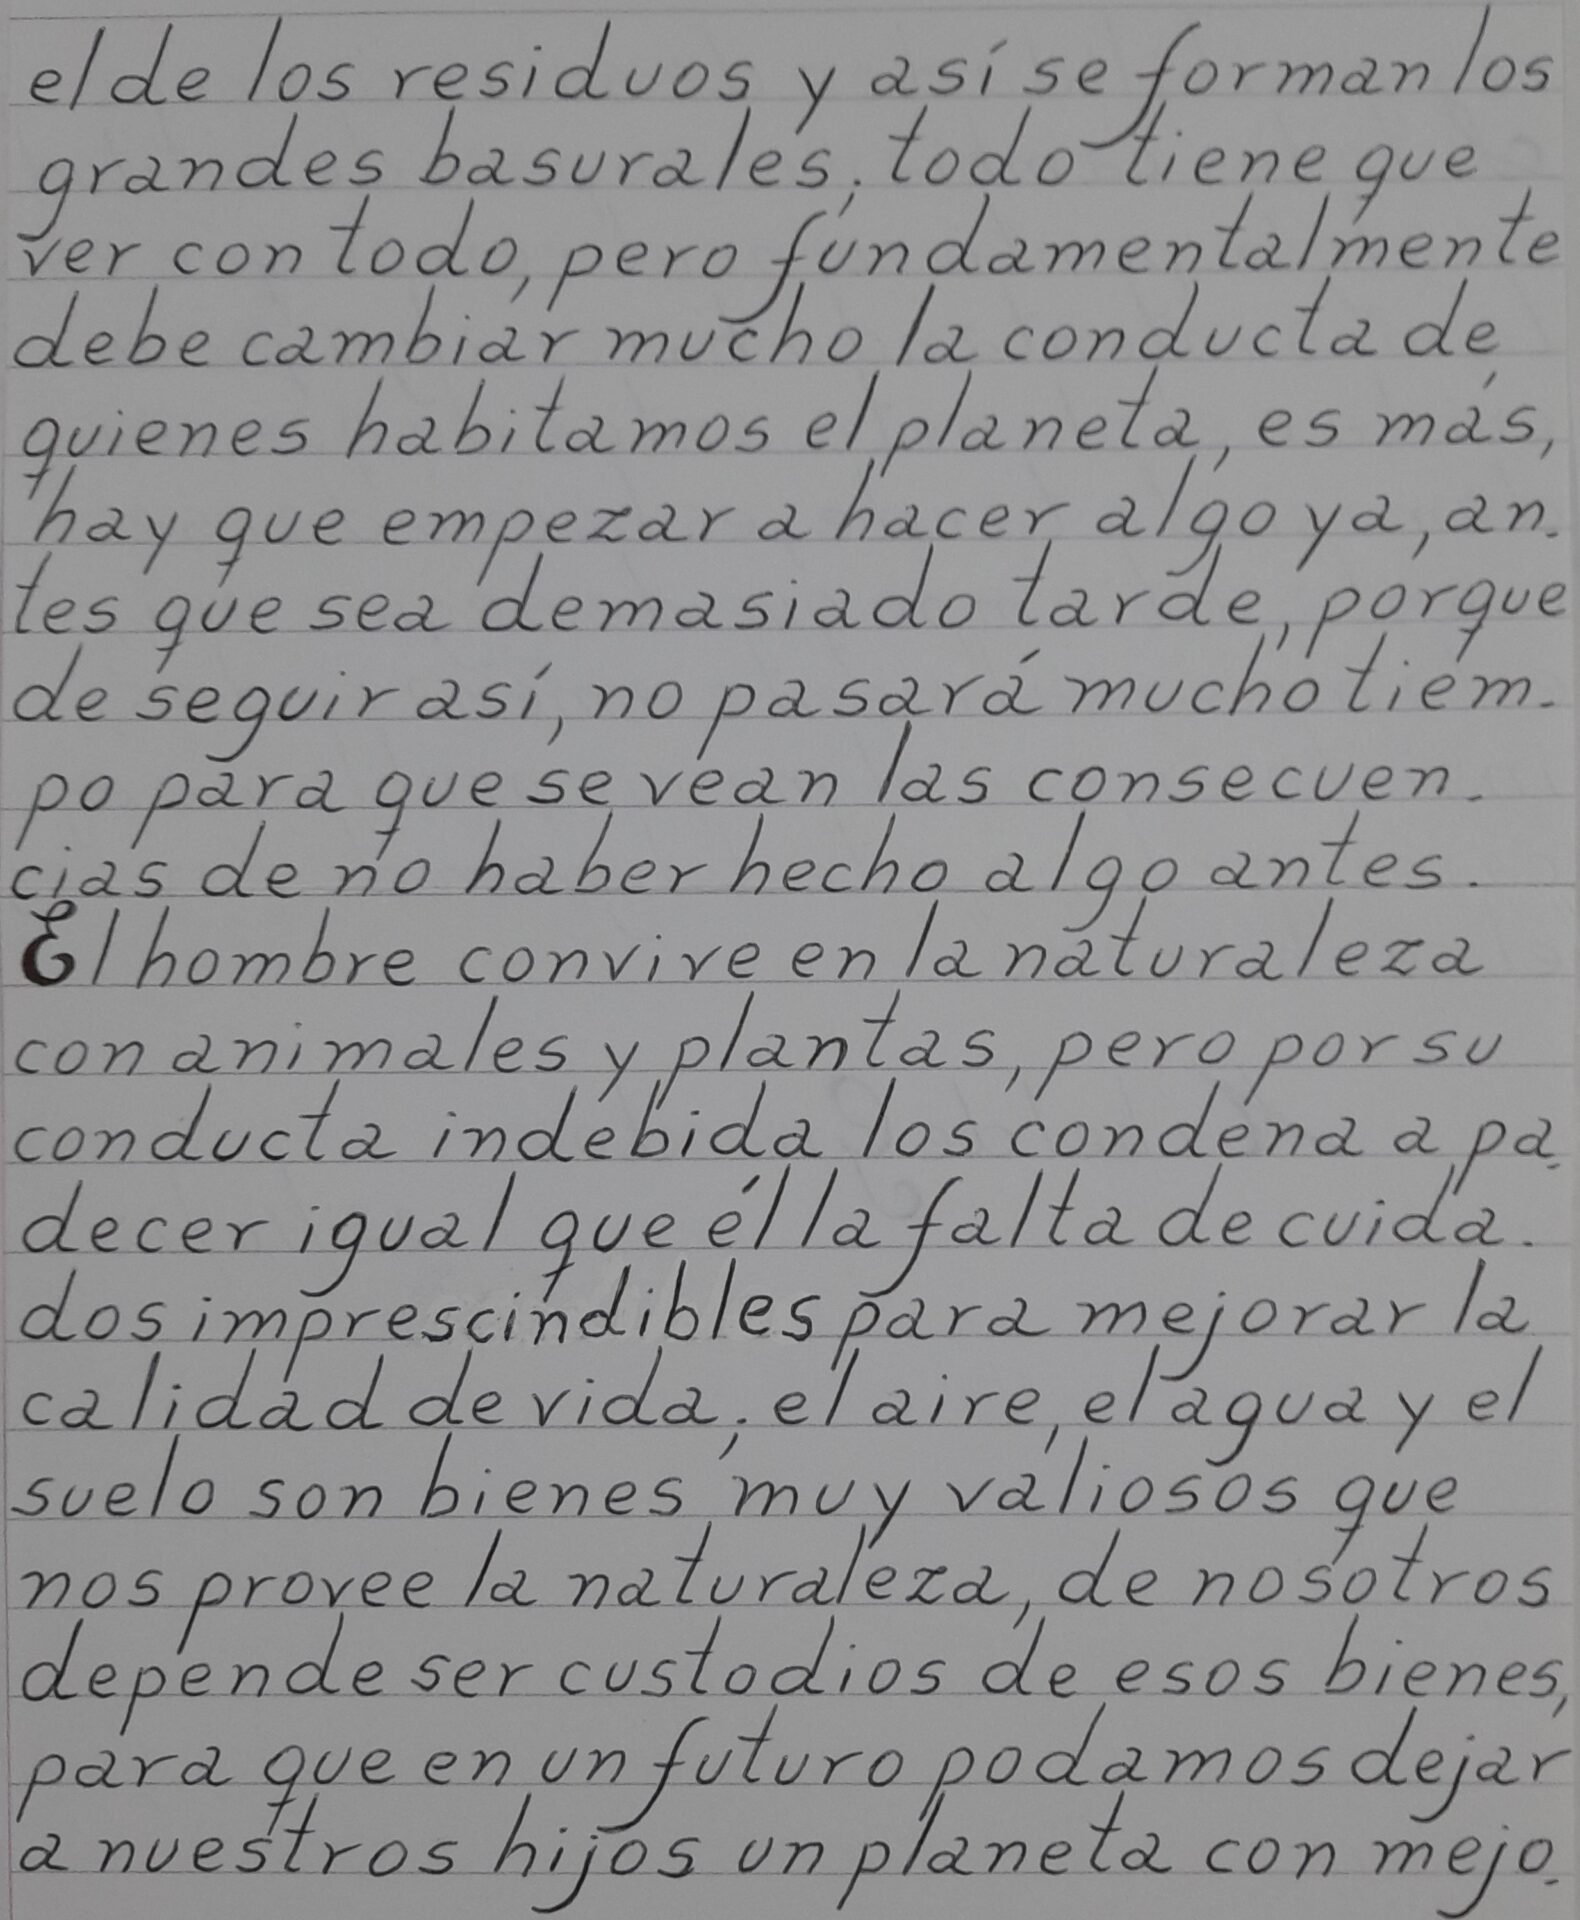 el de los residuos y así se forman los
grandes basurales; todo tiene que
ver con todo, pero fundamentalmente
debe cambiar mucho la conducta de
quienes habitamos el planeta, es más,
hay que empezar a hacer algo ya, an-
tes que sea demasiado tarde, porque
de seguir así, no pasará mucho tiem-
po para que se vean las consecuen-
cias de no haber hecho algo antes.
El hombre convive en la naturaleza
con animales y plantas, pero por su
conducta indebida los condena a pa-
decer igual que él la falta de cuida-
dos imprescindibles para mejorar la
calidad de vida; el aire, el agua y el
suelo son bienes muy valiosos que
nos provee la naturaleza, de nosotros
depende ser custodios de esos bienes,
para que en un futuro podamos dejar
a nuestros hijos un planeta con mejo-